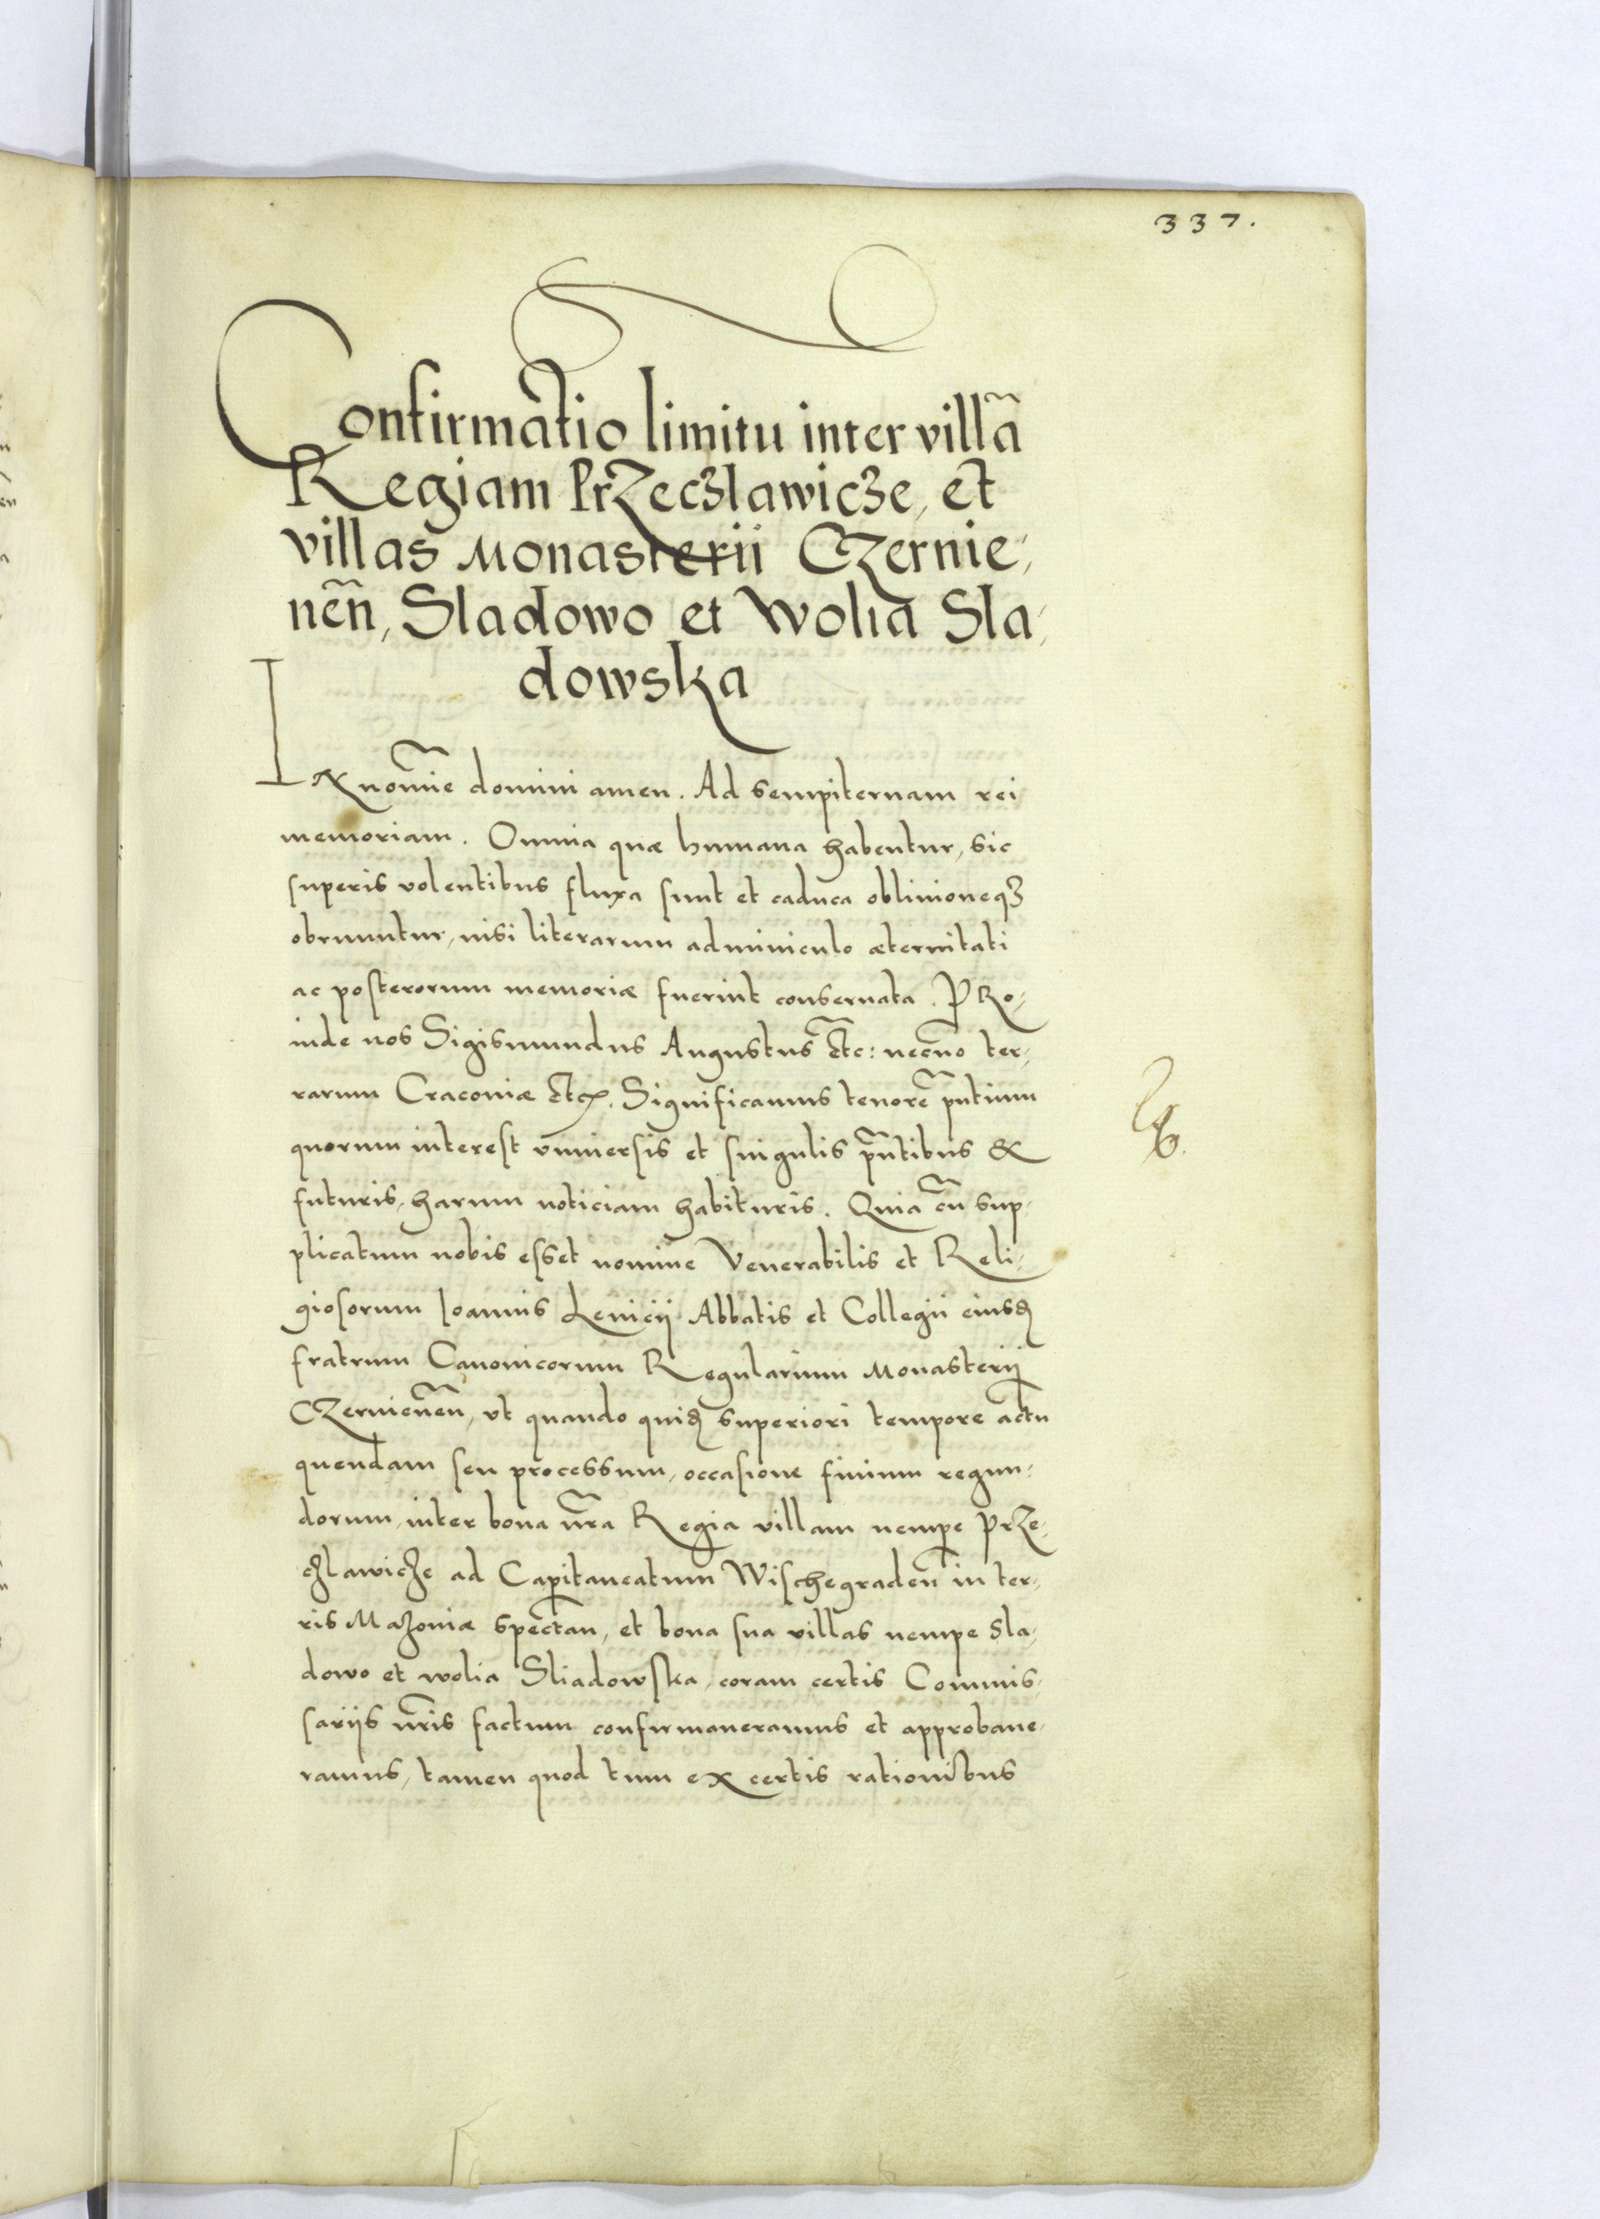 337.
Confirmatio limitu inter villã
Regiam Przeczlawicze, et
villas Monasterii Czernie,
neñ, Sladowo et Wolia Sla,
dowska
In noĩe domini amen. Ad sempiternam rei
memoriam. Omnia quæ humana habentur, sic
superis volentibus fluxa sunt et caduca obliuioneqꝫ
obruuntur, nisi literarum adminiculo æternitati
ac posterorum memoriæ fuerint conseruata. Pro,
inde nos Sigismundus Augustus etc: necño ter,
rarum Cracouiæ etc. Significamus tenorẽ pñtium
quorum interest vniuersis et singulis pñtibus &
futuris, harum noticiam habituris. Quia cũ sup,
plicatum nobis esset nomine Venerabilis et Reli,
giosorum Ioannis Leuicii Abbatis et Collegii eiusd
fratrum Canonicorum Regularium Monasterij
Czerwieneñ, vt quando quid superiori tempore actu
quendam seu processum, occasione finium regun,
dorum, inter bona ñra Regia villam nempe Prze,
czlawicze ad Capitaneatum Wischegradeñ in ter,
ris Mazouiæ spectan, et bona sua villas nempe Sla,
dowo et wolia Sliadowska, coram certis Commis,
sariis ñris factum confirmaueramus et approbaue,
ramus, tamen quod tum ex certis rationibus